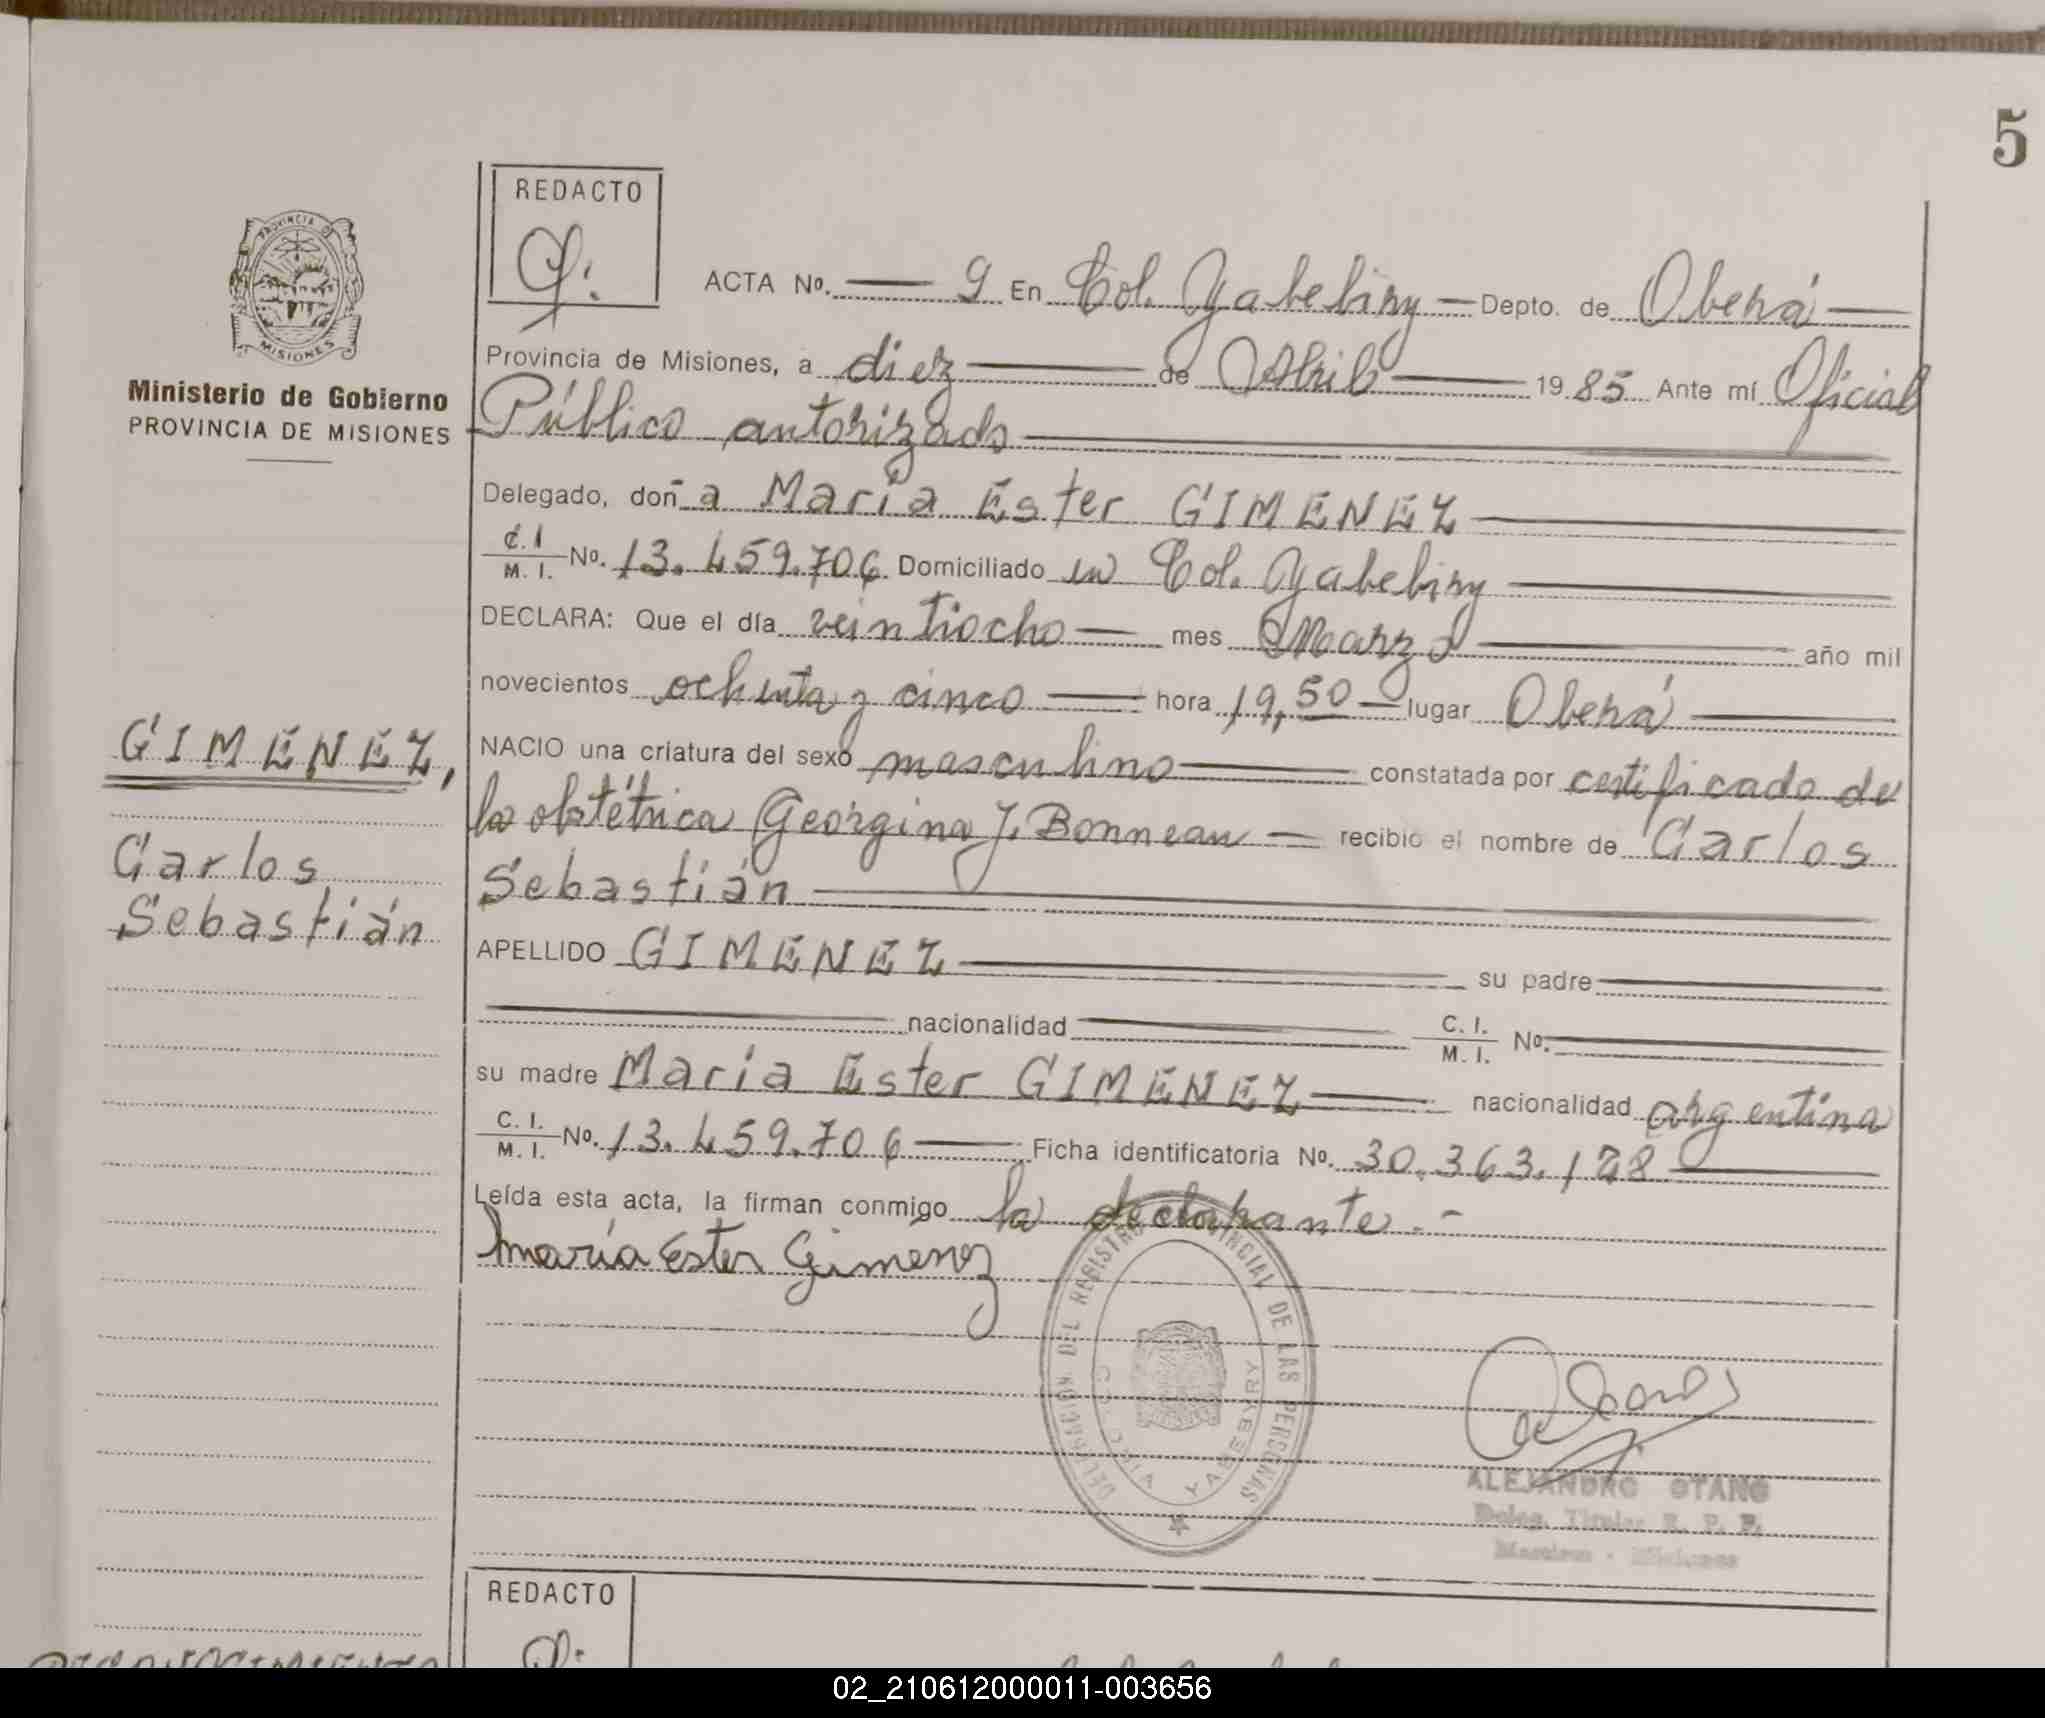 5
REDACTO
PROVINCIA DE
MISIONES
Ministerio de Gobierno
PROVINCIA DE MISIONES
ACTA Nº. 9 En Col. Yabebiry Depto. de Oberá
Provincia de Misiones, a diez de Abril 1985 Ante mí Oficial
Público autorizado
Delegado, doña María Ester GIMENEZ
C.I. M.I. Nº. 13.459.706 Domiciliado en Col. Yabebiry
DECLARA: Que el día veintiocho mes Marzo año mil
novecientos ochenta y cinco hora 19,50 lugar Oberá
NACIO una criatura del sexo masculino constatada por certificado de
la obtétrica Georgina J. Bonneau recibió el nombre de Carlos
Sebastián
APELLIDO GIMENEZ su padre
nacionalidad C. I. M. I. Nº.
su madre María Ester GIMENEZ nacionalidad argentina
C. I. M. I. Nº. 13.459.706 Ficha identificatoria Nº. 30.363.128
Leída esta acta, la firman conmigo la declarante.-
María Ester Gimenez
GIMENEZ,
Carlos
Sebastián
DELEGACION DEL REGISTRO PROVINCIAL DE LAS PERSONAS
COLONIA YABEBIRY
ALEJANDRO OTANO
Deleg. Titular R. P. P.
Misiones
REDACTO
RECONOCIMIENTO
02_210612000011-003656